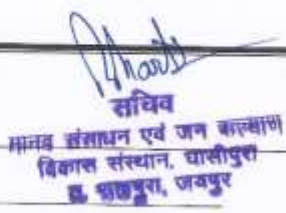 सचिव
मानव संसाधन एवं जन कल्याण
विकास संस्थान, घासीपुरा
जयपुर